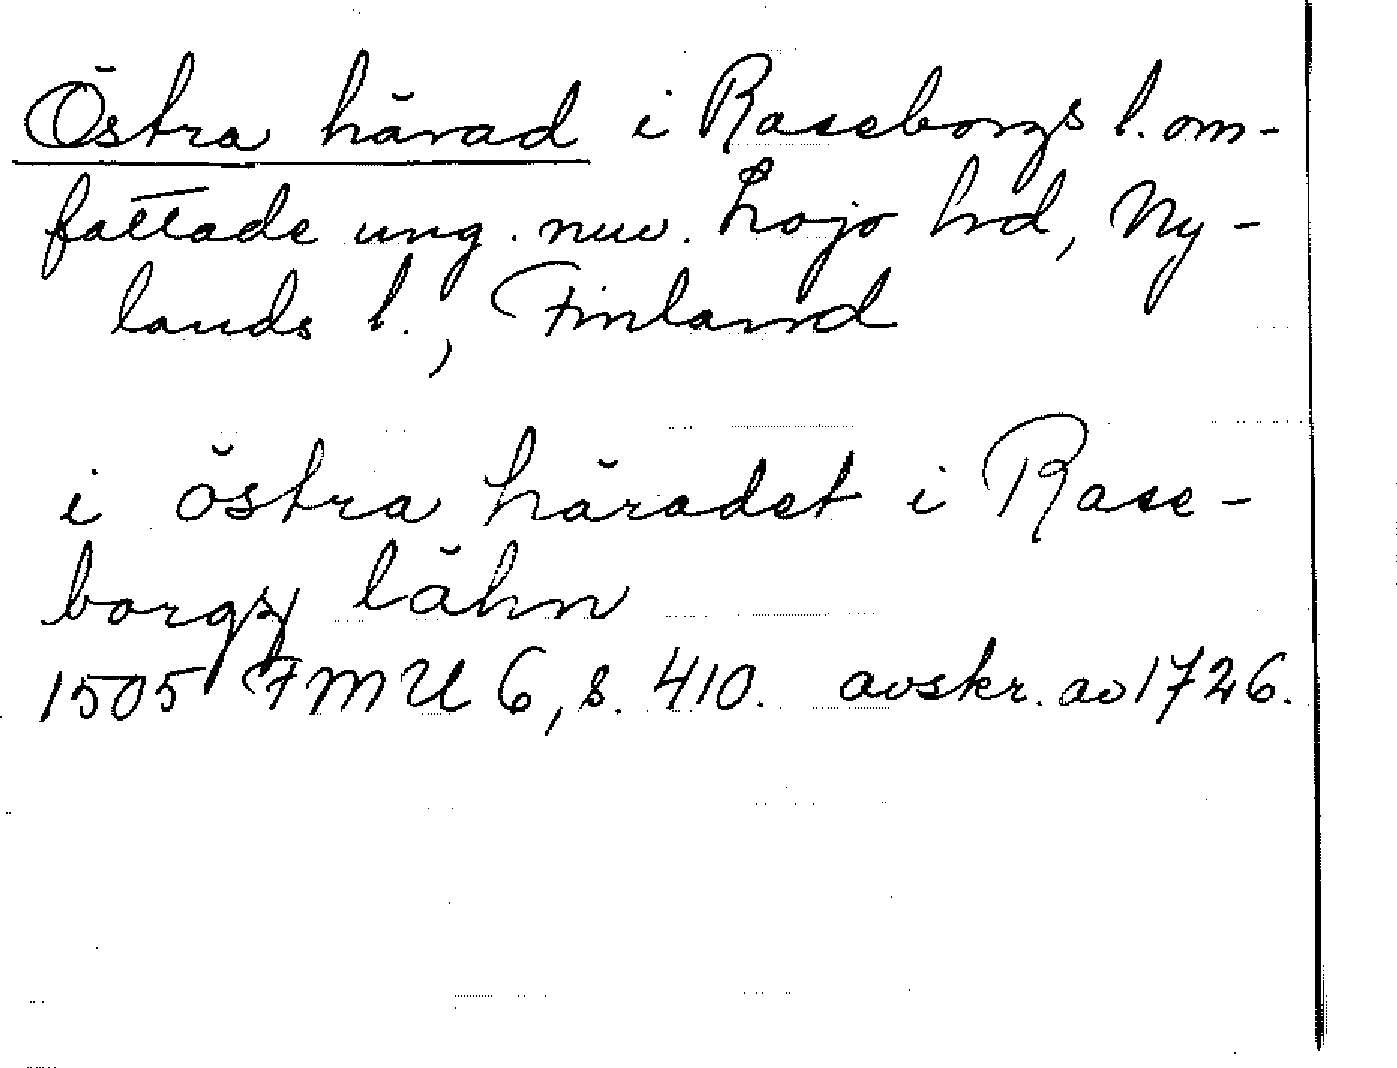 Östra härad i Raseborgs l. om-
fattade ung. nuv. Lojo hrd, Ny-
lands l., Finland
i östra häradet i Rase-
borgs lähn
1505 FMU 6, s. 410. avskr. av 1726.